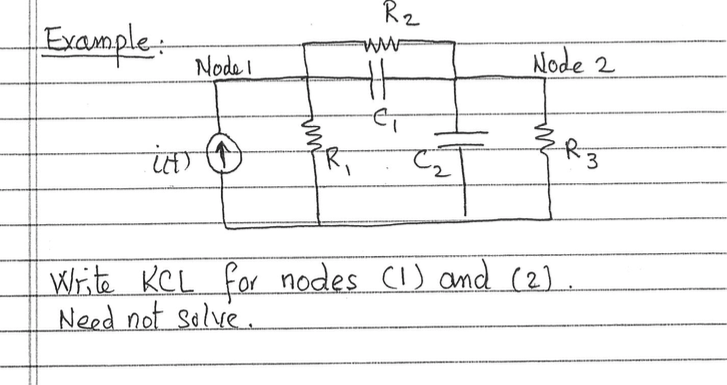 R2
Example:
Node 1
Node 2
C1
i(t)
R1
C2
R3
Write KCL for nodes (1) and (2).
Need not solve.